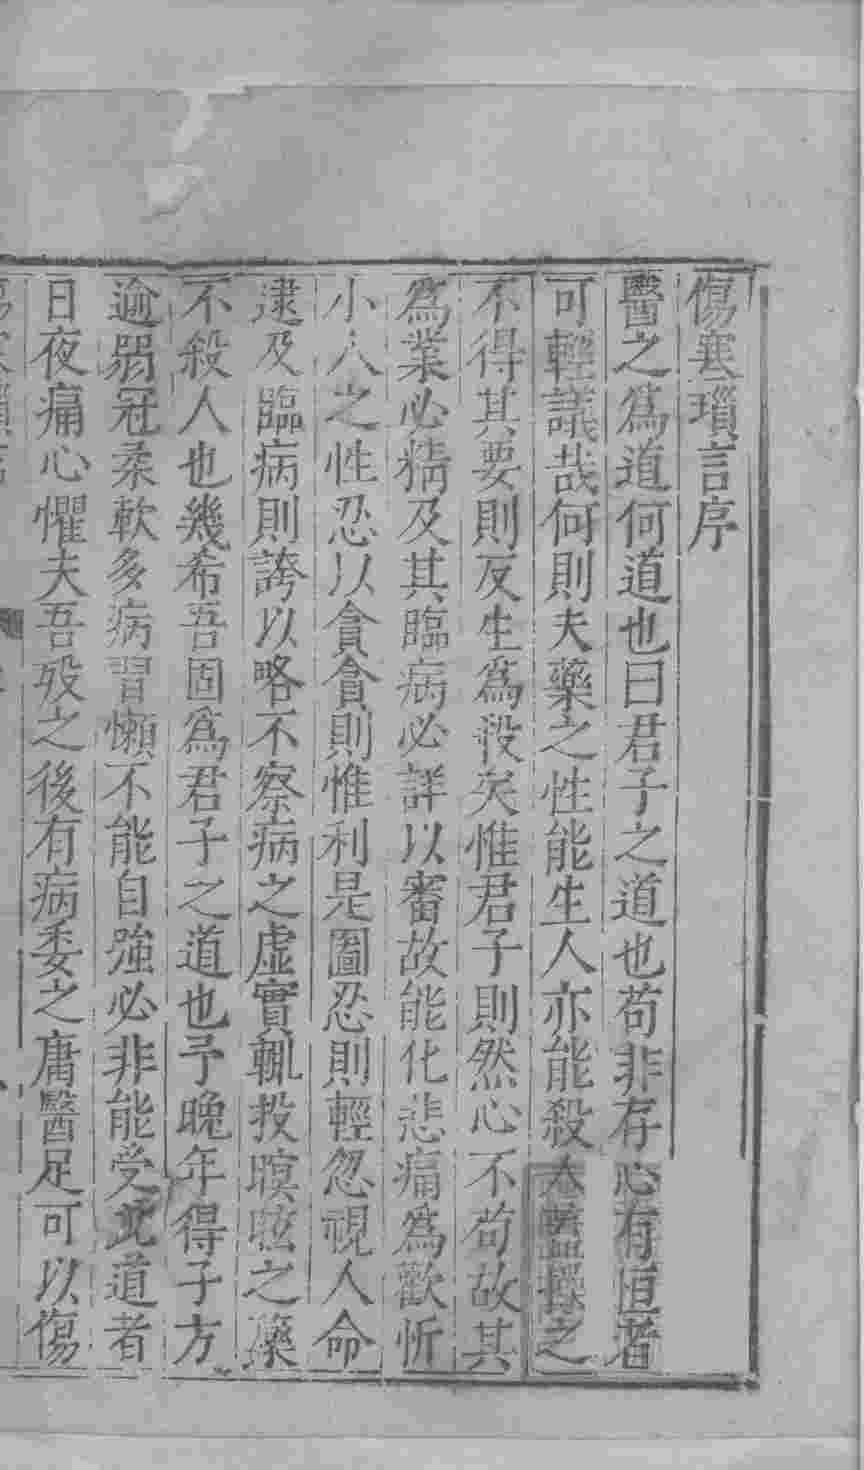 傷寒瑣言序
醫之爲道何道也曰君子之道也苟非存心有恒者
可輕議哉何則夫藥之性能生人亦能殺人醫操之
不得其要則反生爲殺矣惟君子則然心不苟故其
爲業必精及其臨病必詳以審故能化悲痛爲歡忻
小人之性忍以貪貪則惟利是圖忍則輕忽視人命
逮及臨病則誇以略不察病之虛實輒投瞑眩之藥
不殺人也幾希吾固爲君子之道也予晚年得子方
逾弱冠柔軟多病習懶不能自強必非能受此道者
日夜痛心懼夫吾歿之後有病委之庸醫足可以傷